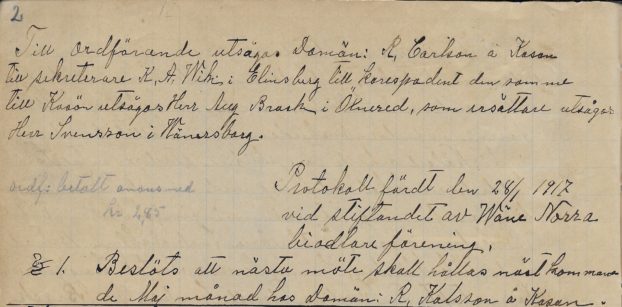 2
Till ordförande utsågas Domän: R, Carlson å Kasen
till sekreterare K, A, Wik i Elinsberg till korespodent den somme
till Kasör utsågos Herr Aug Brask i Öknered, som ersättare utsågos
Herr Svensson i Wänersborg.
ordf: betalt anons med
kr 2,85
Protokoll fördt den 28/1 1917
vid stiftandet av Wäne Norra
biodlare förening,
§ 1. Beslöts att nästa möte skall hållas näst kommane
de Maj månad hos Domän: R, Kalsson å Kasen.